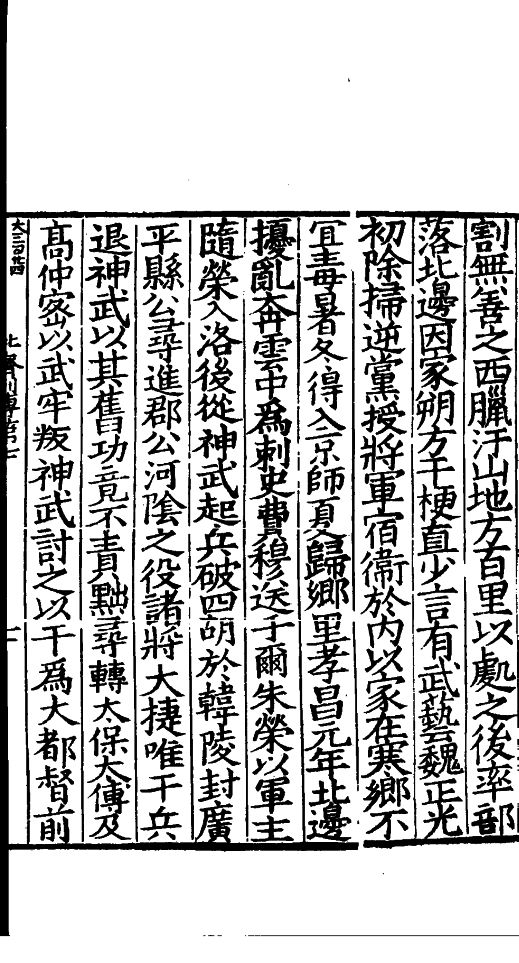 割無善之西臘汗山地方百里以處之後率部
落北邊因家朔方干梗直少言有武藝魏正光
初除掃逆黨授將軍宿衞於内以家在寒鄉不
宜毒暑冬得入京師夏歸鄉里孝昌元年北邊
擾亂奔雲中爲刺史費穆送于爾朱榮以軍主
隨榮入洛後從神武起兵破四胡於韓陵封廣
平縣公尋進郡公河陰之役諸將大捷唯干兵
退神武以其舊功竟不責黜尋轉太保太傅及
高仲密以武牢叛神武討之以干爲大都督前
大三百廿四
北齊列傳第七